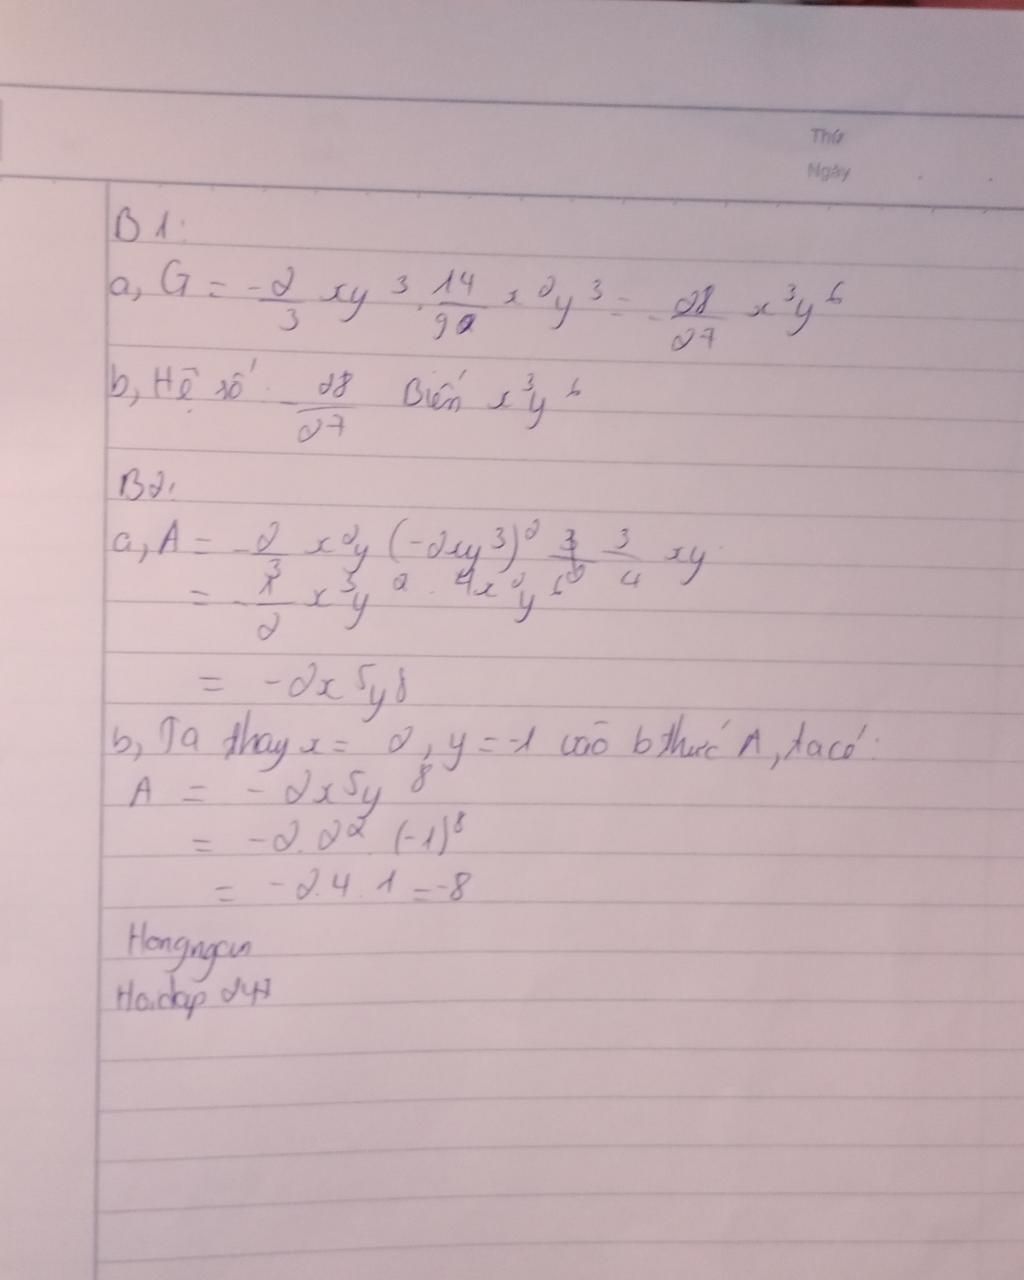 Thứ
Ngày
B1:
a, G = -2/3 xy³ . 14/9 x²y³ = -28/27 x³y⁶
b, Hệ số -28/27 Biến x³y⁶
B2:
a, A = -2/3 x²y (-2xy³)² 3/4 xy
= -1/2 x³y² . 4x²y⁶
= -2x⁵y⁸
b, Ta thay x = 2, y = -1 vào b thức A, ta có:
A = -2x⁵y⁸
= -2.2² (-1)⁸
= -2.4.1 = -8
Hongngan
Hoidap 247